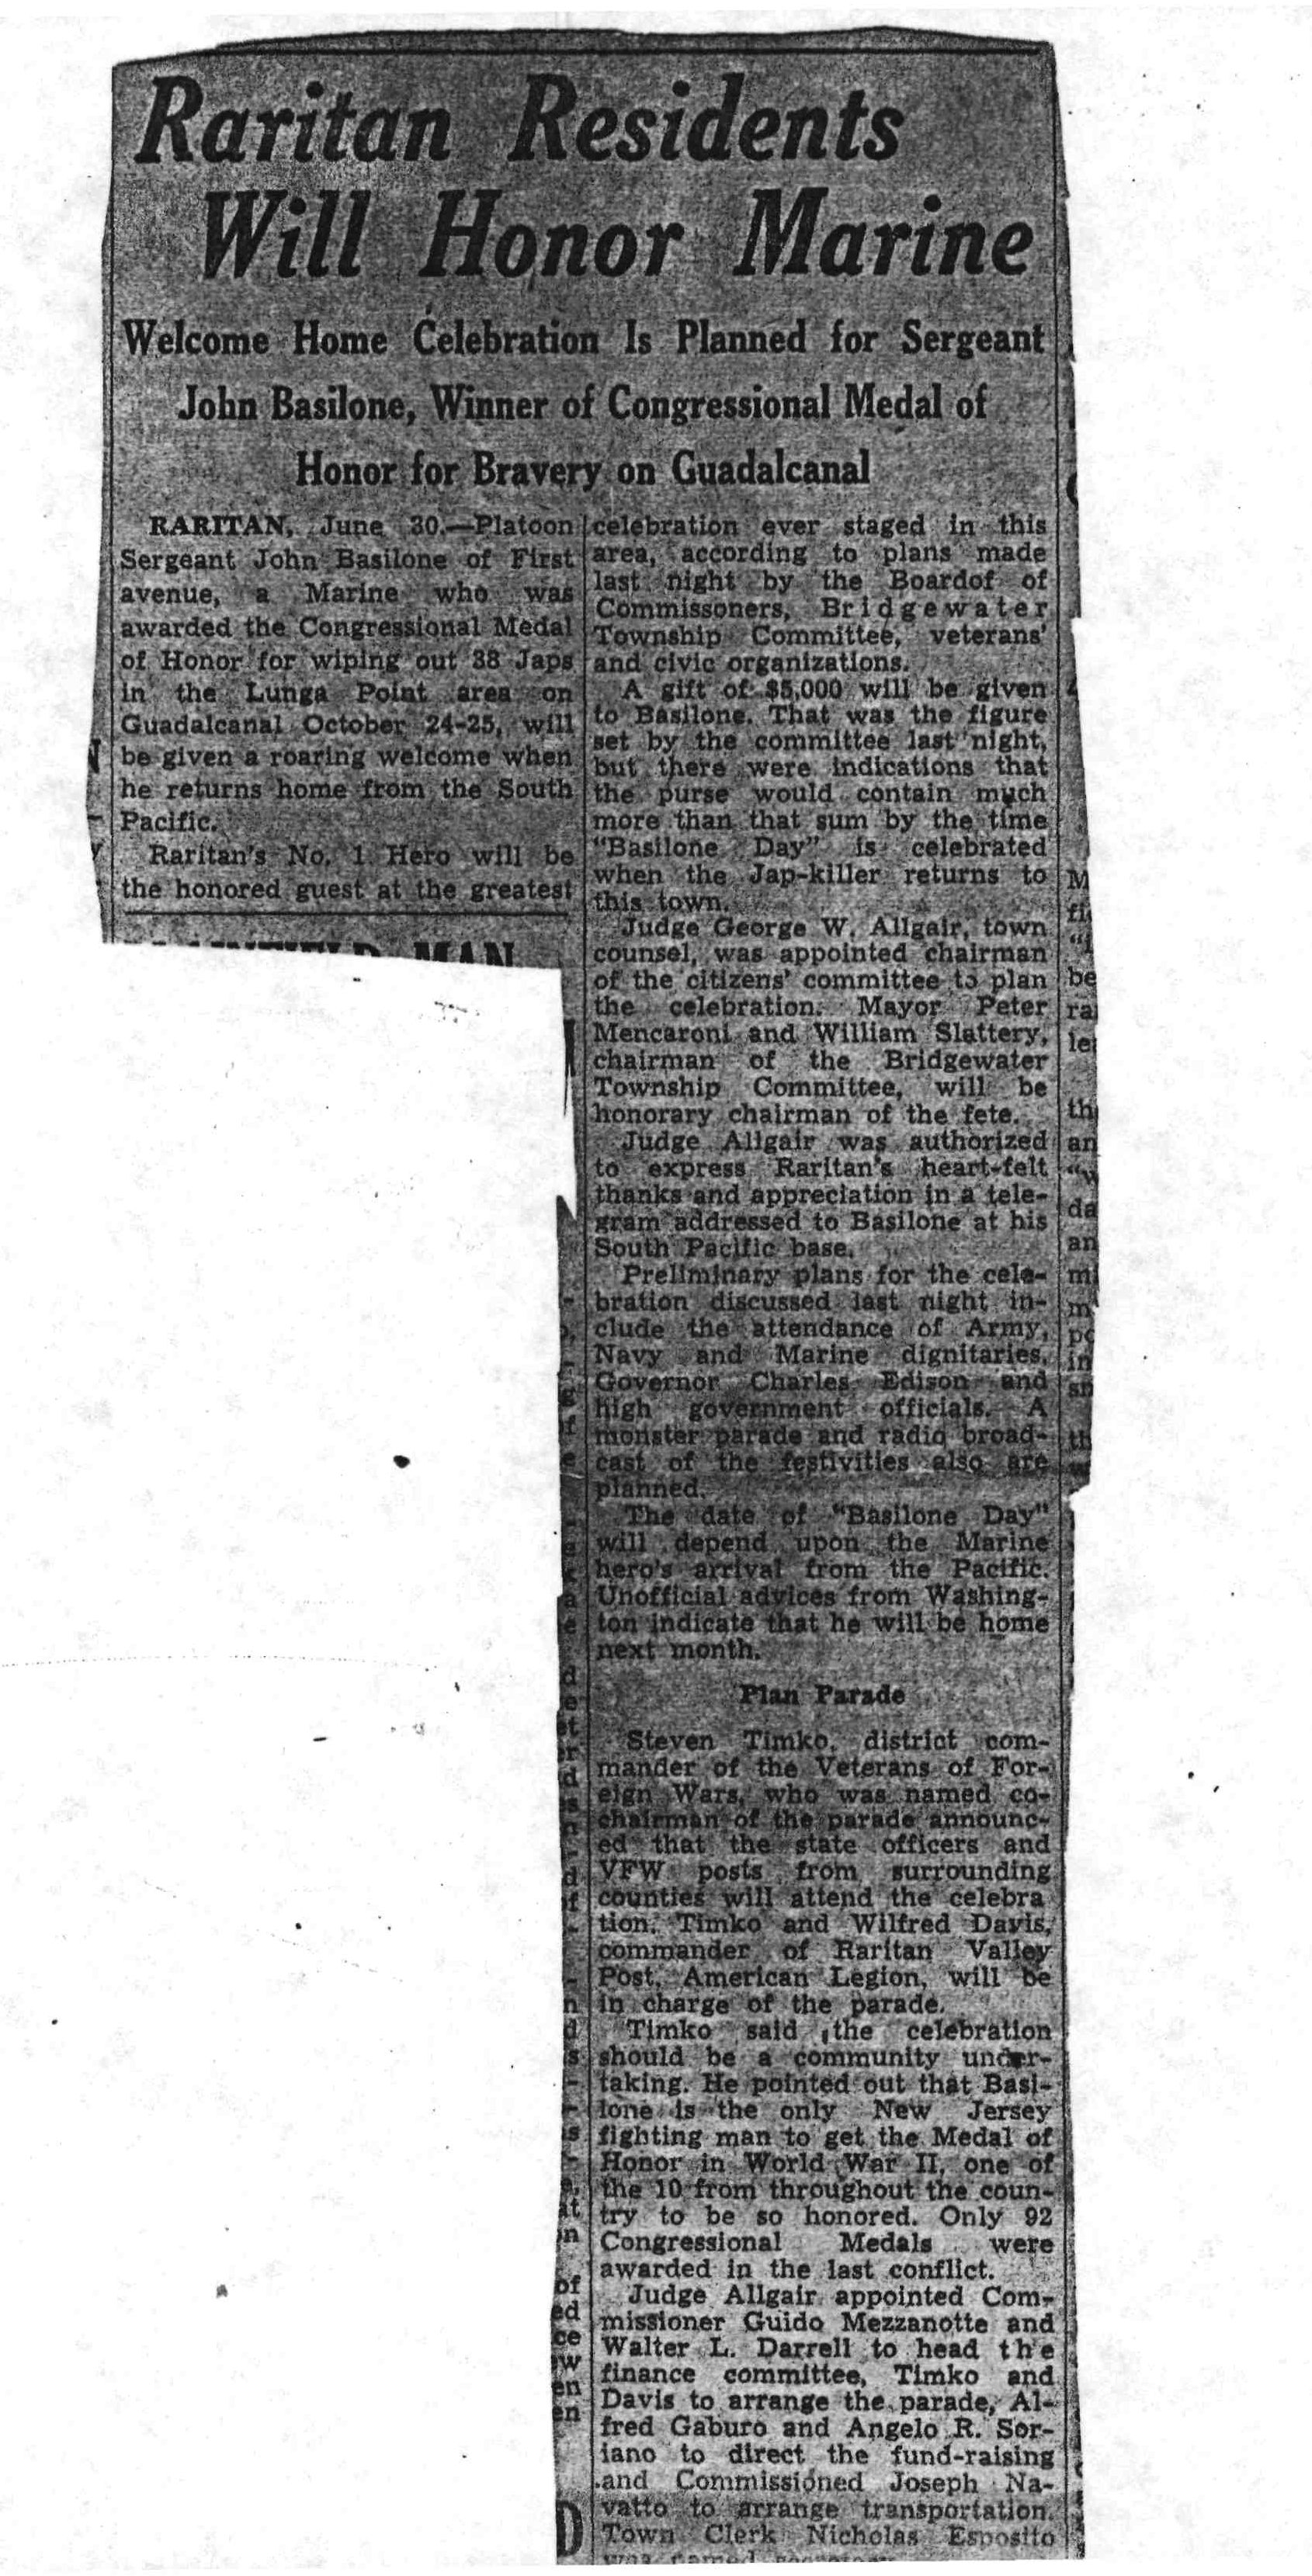 Raritan Residents
Will Honor Marine
Welcome Home Celebration Is Planned for Sergeant
John Basilone, Winner of Congressional Medal of
Honor for Bravery on Guadalcanal
RARITAN, June 30.—Platoon
Sergeant John Basilone of First
avenue, a Marine who was
awarded the Congressional Medal
of Honor for wiping out 38 Japs
in the Lunga Point area on
Guadalcanal October 24-25, will
be given a roaring welcome when
he returns home from the South
Pacific.
Raritan's No. 1 Hero will be
the honored guest at the greatest
celebration ever staged in this
area, according to plans made
last night by the Boardof of
Commissoners, Bridgewater
Township Committee, veterans'
and civic organizations.
A gift of $5,000 will be given
to Basilone. That was the figure
set by the committee last night,
but there were indications that
the purse would contain much
more than that sum by the time
"Basilone Day" is celebrated
when the Jap-killer returns to
this town.
Judge George W. Allgair, town
counsel, was appointed chairman
of the citizens' committee to plan
the celebration. Mayor Peter
Mencaroni and William Slattery,
chairman of the Bridgewater
Township Committee, will be
honorary chairman of the fete.
Judge Allgair was authorized
to express Raritan's heart-felt
thanks and appreciation in a tele-
gram addressed to Basilone at his
South Pacific base.
Preliminary plans for the cele-
bration discussed last night in-
clude the attendance of Army,
Navy and Marine dignitaries,
Governor Charles Edison and
high government officials. A
monster parade and radio broad-
cast of the festivities also are
planned.
The date of "Basilone Day"
will depend upon the Marine
hero's arrival from the Pacific.
Unofficial advices from Washing-
ton indicate that he will be home
next month.
Plan Parade
Steven Timko, district com-
mander of the Veterans of For-
eign Wars, who was named co-
chairman of the parade announc-
ed that the state officers and
VFW posts from surrounding
counties will attend the celebra
tion. Timko and Wilfred Davis,
commander of Raritan Valley
Post, American Legion, will be
in charge of the parade.
Timko said the celebration
should be a community under-
taking. He pointed out that Basi-
lone is the only New Jersey
fighting man to get the Medal of
Honor in World War II, one of
the 10 from throughout the coun-
try to be so honored. Only 92
Congressional Medals were
awarded in the last conflict.
Judge Allgair appointed Com-
missioner Guido Mezzanotte and
Walter L. Darrell to head the
finance committee, Timko and
Davis to arrange the parade, Al-
fred Gaburo and Angelo R. Sor-
iano to direct the fund-raising
and Commissioned Joseph Na-
vatto to arrange transportation.
Town Clerk Nicholas Esposito
was named secretary